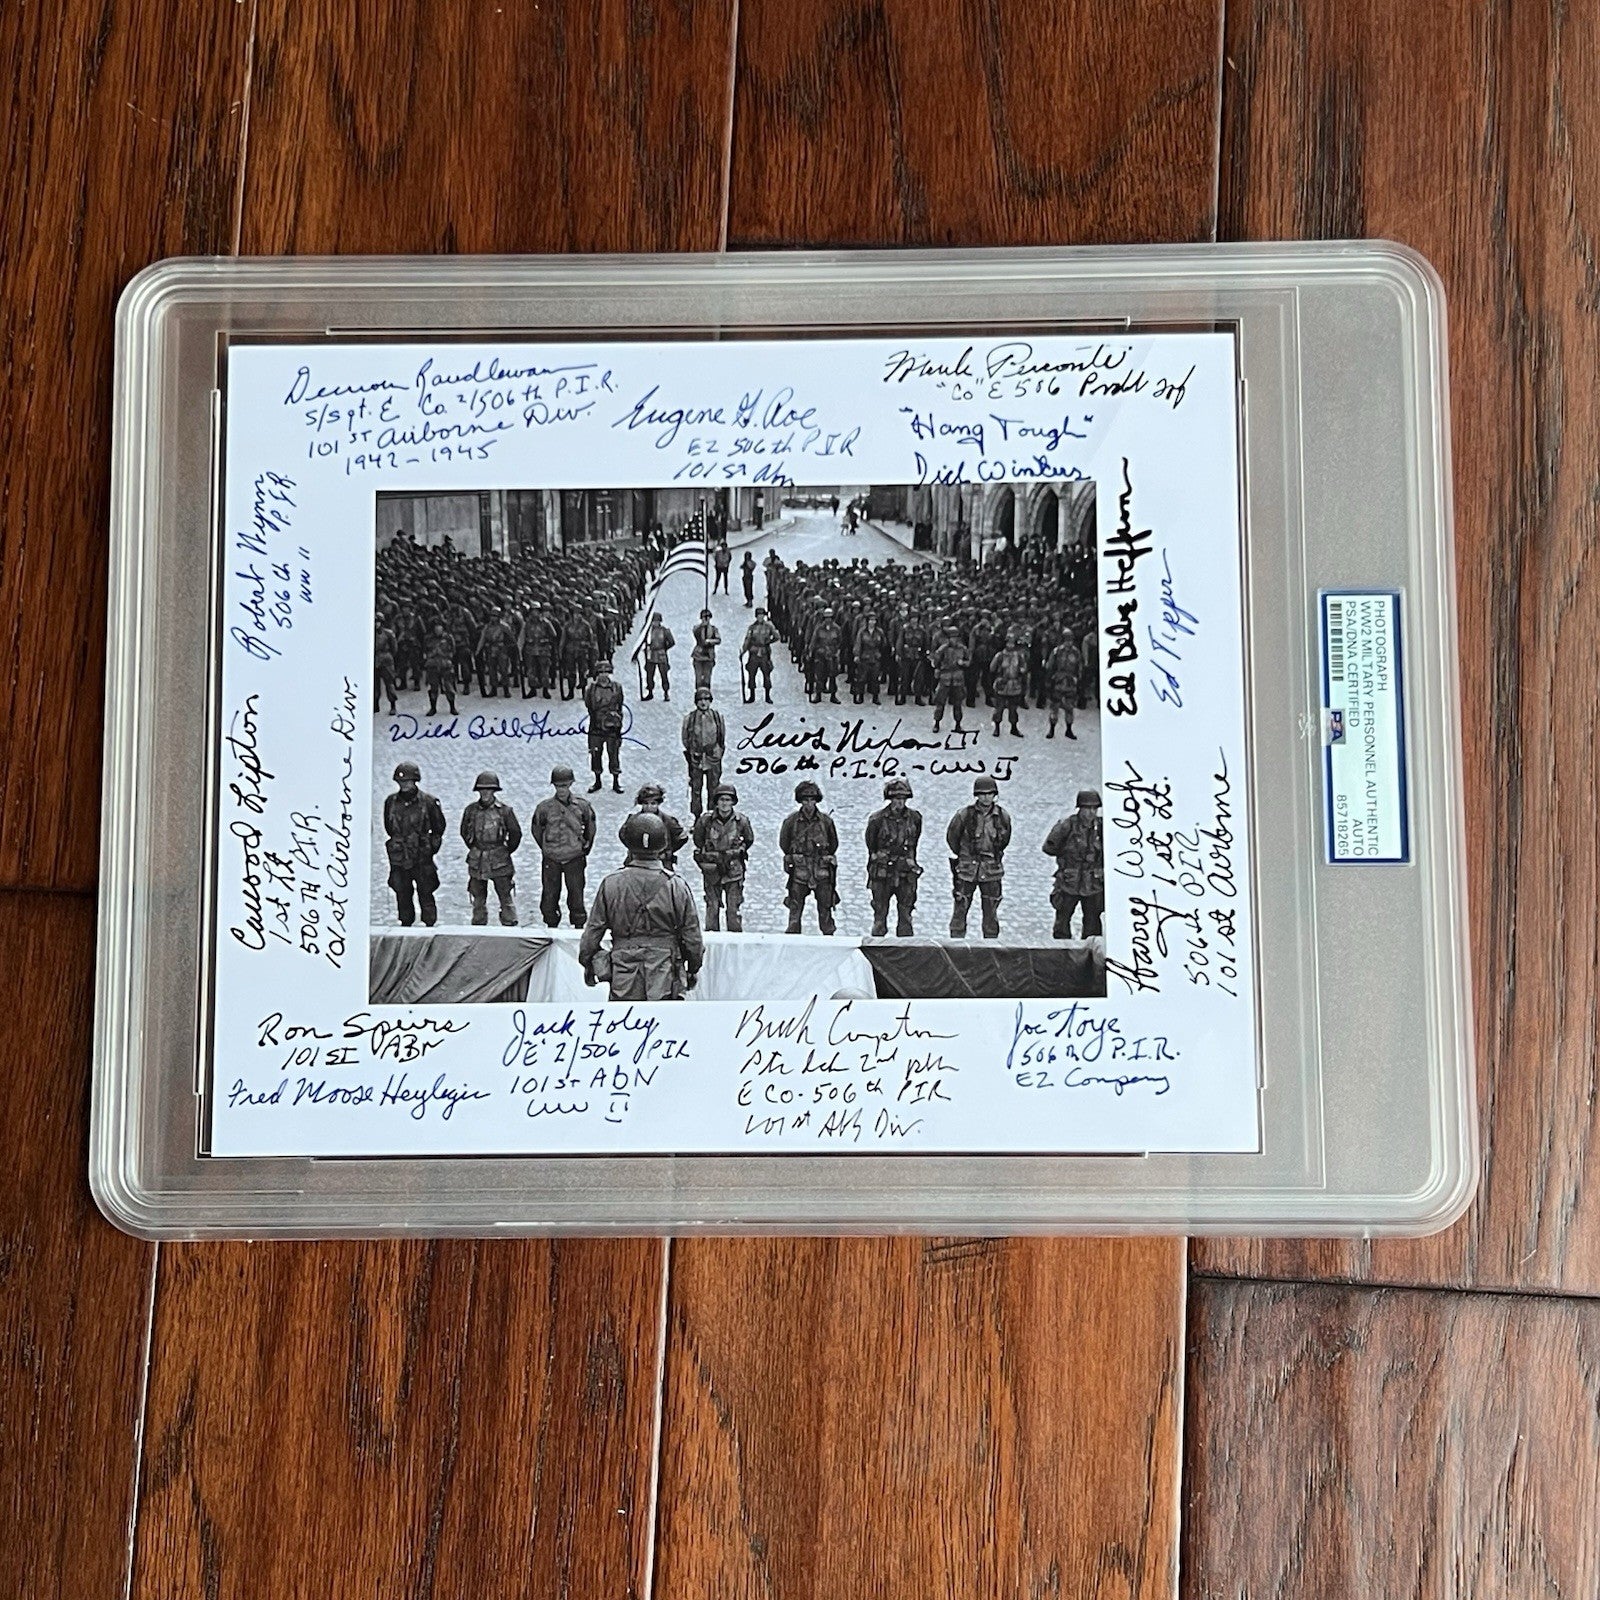 Denver Randleman
S/Sgt. E Co. 2/506th P.I.R.
101ST Airborne Div.
1942-1945
Eugene G. Roe
E2 506th PIR
101st Abn
Frank Perconte
"Co" E 506
"Hang Tough"
Dick Winters
Robert Wynn
506th P.I.R.
WW II
Ed Babe Heffron
Ed Tipper
Wild Bill
Lewis Nixon III
506th P.I.R. - WW II
Carwood Lipton
1st Lt.
506TH P.I.R.
101st Airborne Div.
Harry Welsh
1st Lt.
506th P.I.R.
101st Airborne
Ron Speirs
101ST ABN
Fred Moose Heyliger
Jack Foley
"E" 2/506 PIR
101st AbN
WW II
Buck Compton
2nd
E Co. 506th PIR
101st Div.
Joe Toye
506th P.I.R.
E2 Company
PHOTOGRAPH
WW2 MILITARY PERSONNEL AUTHENTIC
PSA/DNA CERTIFIED AUTO
85718265
PSA